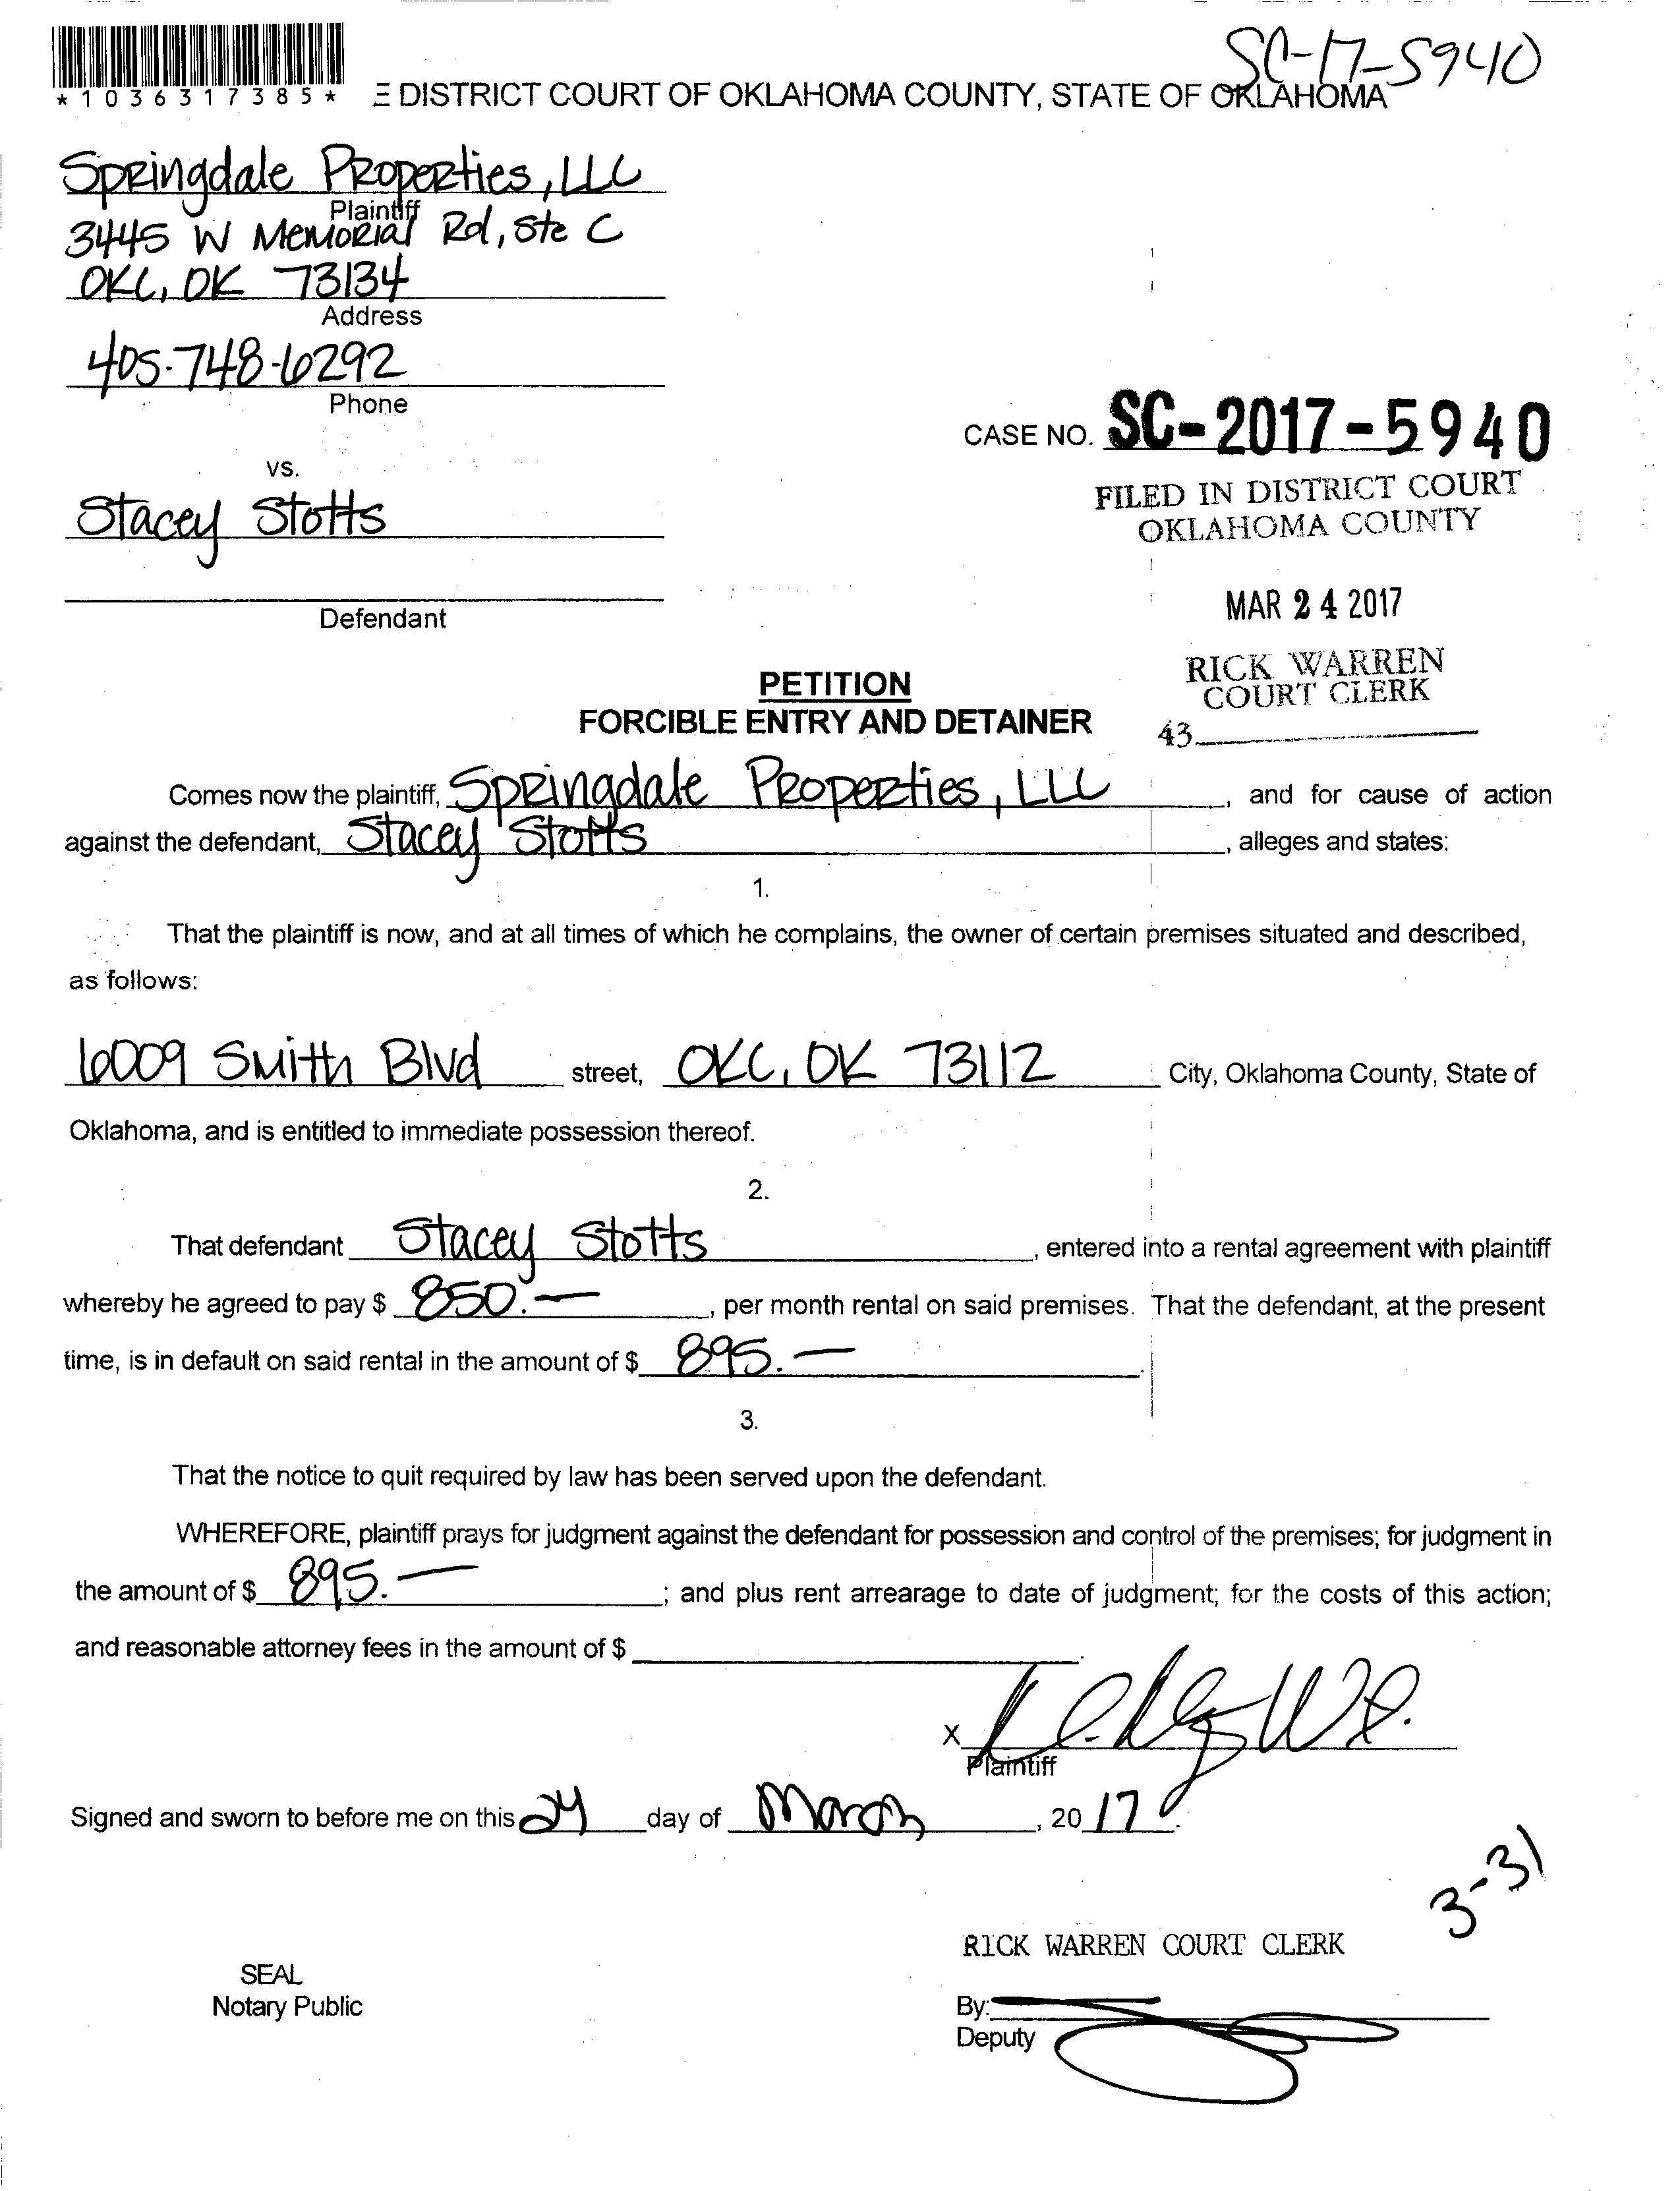 SC-17-5940
*1036317385*
E DISTRICT COURT OF OKLAHOMA COUNTY, STATE OF OKLAHOMA
Springdale Properties, LLC
Plaintiff
3445 W Memorial Rd, Ste C
OKC, OK 73134
Address
405-748-6292
Phone
CASE NO. SC-2017-5940
vs.
FILED IN DISTRICT COURT
OKLAHOMA COUNTY
Stacey Stotts
Defendant
MAR 24 2017
RICK WARREN
COURT CLERK
43
PETITION
FORCIBLE ENTRY AND DETAINER
Comes now the plaintiff, Springdale Properties, LLC, and for cause of action
against the defendant, Stacey Stotts, alleges and states:
1.
That the plaintiff is now, and at all times of which he complains, the owner of certain premises situated and described,
as follows:
6009 Smith Blvd street, OKC, OK 73112 City, Oklahoma County, State of
Oklahoma, and is entitled to immediate possession thereof.
2.
That defendant Stacey Stotts, entered into a rental agreement with plaintiff
whereby he agreed to pay $ 850.—, per month rental on said premises. That the defendant, at the present
time, is in default on said rental in the amount of $ 895.—.
3.
That the notice to quit required by law has been served upon the defendant.
WHEREFORE, plaintiff prays for judgment against the defendant for possession and control of the premises; for judgment in
the amount of $ 895.—; and plus rent arrearage to date of judgment; for the costs of this action;
and reasonable attorney fees in the amount of $ .
X
Plaintiff
Signed and sworn to before me on this 24 day of March, 2017.
3-31
RICK WARREN COURT CLERK
SEAL
Notary Public
By:
Deputy